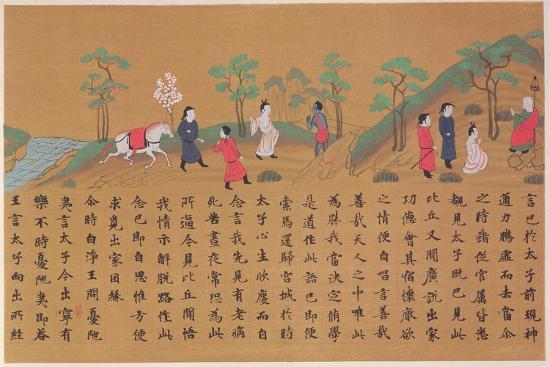 言已於太子前現神
通力騰虛而去當尒
之時諸從官屬皆悉
覩見太子既已見此
比丘又聞廣說出家
功德會其宿懷厭欲
之情便自唱言善哉
善哉天人之中唯此
為勝我當決定脩學
是道作此語已即便
索馬還歸宮城於時
太子心生欣慶而自
念言我先見有老病
死苦晝夜常恐為此
所逼今見比丘開悟
我情示解脫路作此
念已即自思惟方便
求覓出家因緣
尒時白淨王問憂陁
夷言太子今出寧有
樂不時憂陁夷即荅
王言太子向出所經